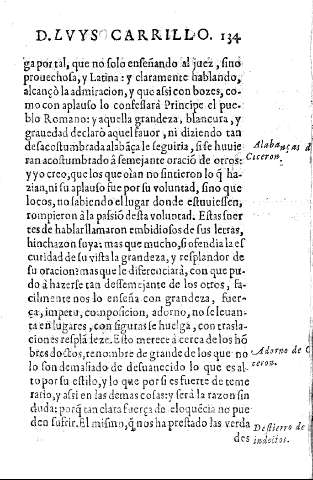 D. LVYS CARRILLO. 134
ga portal, que no solo enseñando al juez, sino
prouechosa, y Latina: y claramente hablando,
alcançò la admiracion, y que assi con bozes, co-
mo con aplauso lo confessarà Principe el pue-
blo Romano: y aquella grandeza, blancura, y
grauedad declarò aquel fauor, ni diziendo tan
desacostumbrada alabãça le seguiria, si se huuie
ran acostumbrado à semejante oraciõ de otros:
y yo creo, que los que oìan no sintieron lo q̃ ha-
zian, ni su aplauso fue por su voluntad, sino que
locos, no sabiendo el lugar donde estuuiessen,
rompieron à la passiõ desta voluntad. Estas suer
tes de hablar llamaron embidiosos de sus letras,
hinchazon suya: mas que mucho, si ofendia la es
curidad de su vista la grandeza, y resplandor de
su oracion: mas que le diferenciarà, con que pu-
do à hazerse tan dessemejante de los otros, fa-
cilmente nos lo enseña con grandeza, fuer-
ça, impetu, composicion, adorno, no se leuan-
ta en lugares, con figuras se huelga, con trasla-
ciones resplãdeze. Esto merecè à cerca de los hõ
bres doctos, renombre de grande de los que no
lo son demasiado de desuanecido lo que es al-
to por su estilo, y lo que por si es fuerte de teme
rario, y assi en las demas cosas: y serà la razon sin
duda: porq̃ tan clara fuerça de eloquẽcia ne pue-
den sufrir. El mismo, q̃ nos ha prestado las verda
des
Alabanças d
Ciceron.
Adorno de C
ceron.
Destierro de
indoctos.